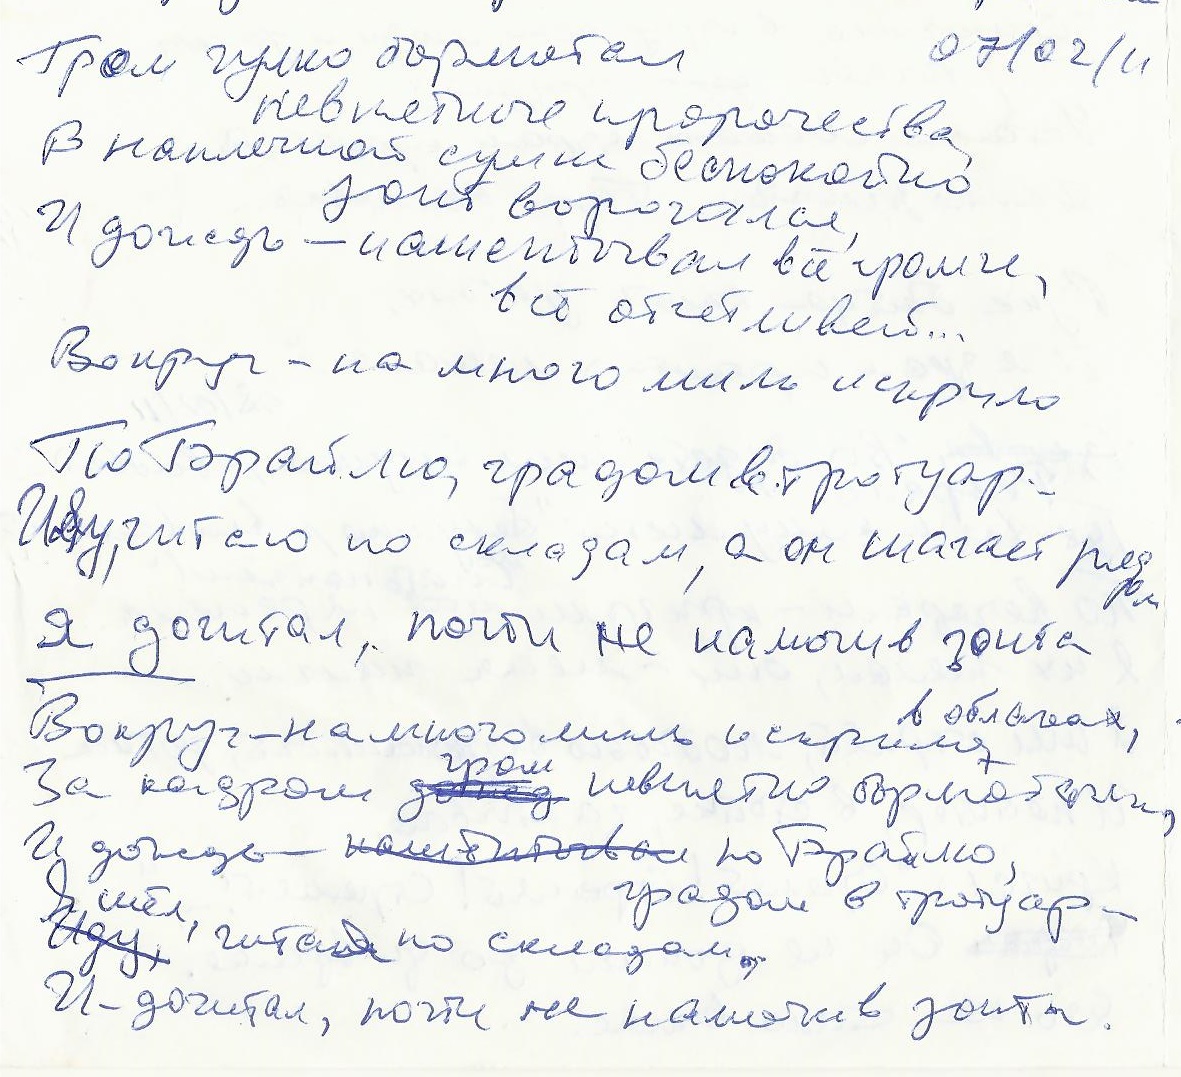 Гром гулко бормотал 07/02/11
невнятные пророчества,
В наплечной сумке беспокойно
зонт ворочался,
И дождь – нашептывал всё громче,
всё отчетливей...
Вокруг – на много миль искрило
По Брайлю, градом в тротуар –
Иду, читаю по складам, а он шагает рядом
Я дочитал, почти не намочив зонта
Вокруг – на много миль искрило в облаках,
За кадром дождь гром невнятно бормотал
И дождь – нашептывал по Брайлю,
градом в тротуар –
Иду, Я шёл, читая по складам,
И – дочитал, почти не намочив зонта.